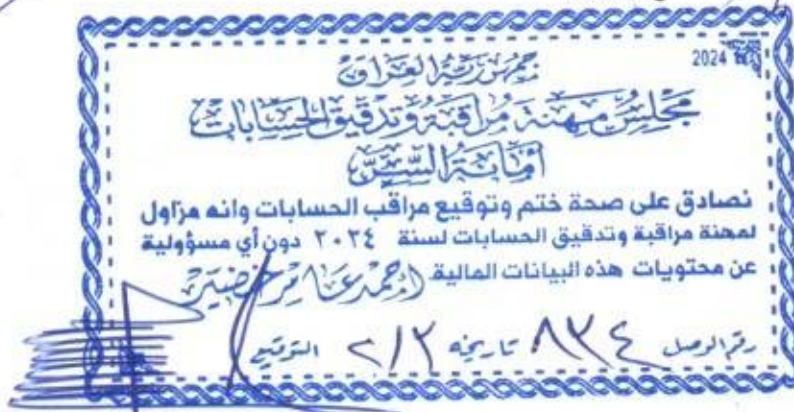 2024
جمهورية العراق
مجلس مهنة مراقبة وتدقيق الحسابات
أمانة السر
نصادق على صحة ختم وتوقيع مراقب الحسابات وانه مزاول
لمهنة مراقبة وتدقيق الحسابات لسنة ٢٠٢٤ دون أي مسؤولية
عن محتويات هذه البيانات المالية احمد عامر خضير
رقم الوصل ٨٣٤ تاريخه ٢/٢ التوقيع